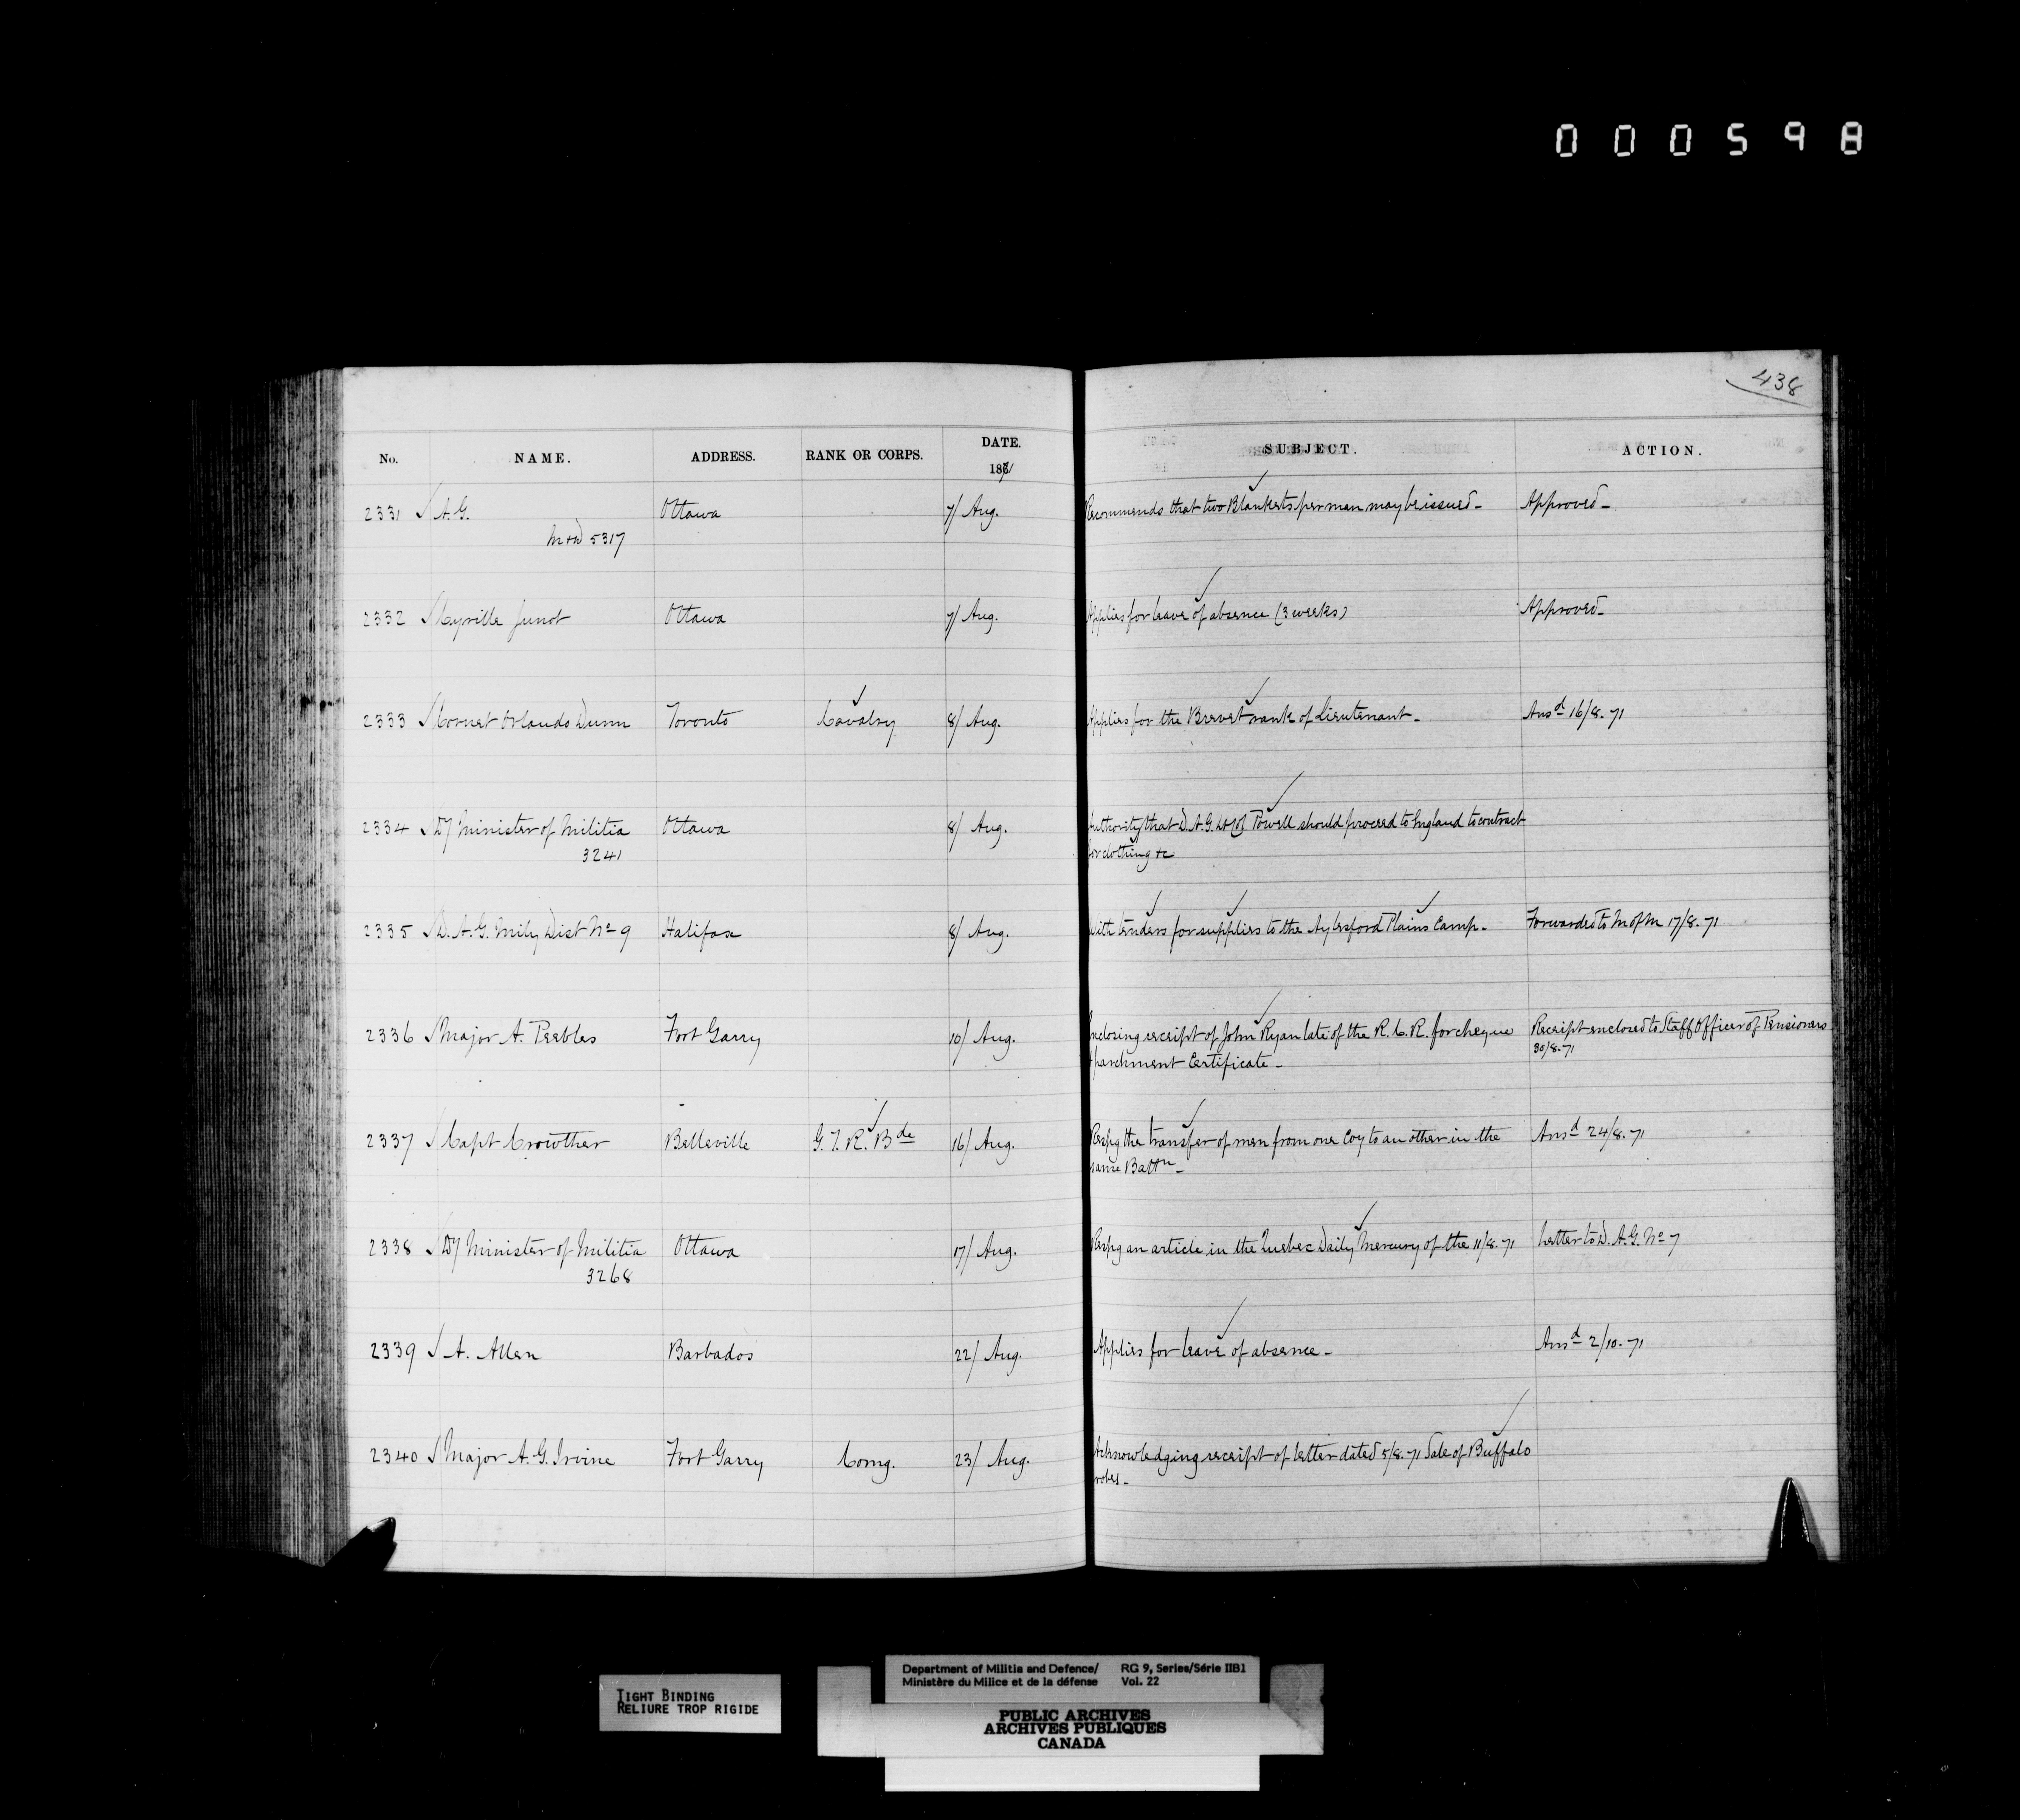 000598
438
No. NAME. ADDRESS. RANK OR CORPS. DATE. SUBJECT. ACTION.
1871
2331 A. G. Ottawa 7/ Aug. Recommends that two Blankets per man may be issued - Approved -
M & D 5317
2332 Cyrille Junot Ottawa 7/ Aug. Applies for leave of absence (3 weeks) Approved -
2333 Cornet Orlando Dunn Toronto Cavalry 8/ Aug. Applies for the Brevet rank of Lieutenant - Ansd 16/8.71
2334 Dy Minister of Militia Ottawa 8/ Aug. Authority that D.A.G. Lt Col Powell should proceed to England to contract
3241 for clothing &c
2335 D. A. G. Mily Dist No 9 Halifax 8/ Aug. With tenders for supplies to the Aylesford Plains Camp - Forwarded to M of M 17/8.71
2336 Major A. Peebles Fort Garry 10/ Aug. Enclosing receipt of John Ryan late of the R. C. R. for cheque Receipt enclosed to Staff Officer of Pensioners
& parchment Certificate - 30/8.71
2337 Capt Crowther Belleville G. T. R. Bde 16/ Aug. Respg the transfer of men from one Coy to another in the Ansd 24/8.71
same Battn -
2338 Dy Minister of Militia Ottawa 17/ Aug. Respg an article in the Quebec Daily Mercury of the 11/8.71 Letter to D. A. G. No 7
3268
2339 A. Allen Barbados 22/ Aug. Applies for leave of absence - Ansd 2/10.71
2340 Major A. G. Irvine Fort Garry Comg. 23/ Aug. Acknowledging receipt of letter dated 5/8.71 Sale of Buffalo
robes -
TIGHT BINDING
RELIURE TROP RIGIDE
Department of Militia and Defence/ RG 9, Series/Série IIB1
Ministère du Milice et de la défense Vol. 22
PUBLIC ARCHIVES
ARCHIVES PUBLIQUES
CANADA